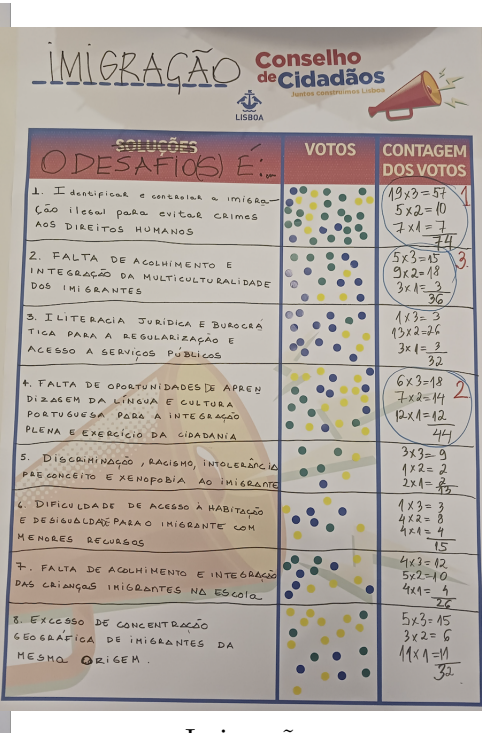 IMIGRAÇÃO
Conselho
de Cidadãos
Juntos construímos Lisboa
LISBOA
SOLUÇÕES
O DESAFIO(S) É:...
VOTOS
CONTAGEM
DOS VOTOS
1. Identificar e controlar a imigra-
ção ilegal para evitar crimes
AOS DIREITOS HUMANOS
19x3=57
5x2=10
7x1=7
74
1
2. FALTA DE ACOLHIMENTO E
INTEGRAÇÃO DA MULTICULTURALIDADE
DOS IMIGRANTES
5x3=15
9x2=18
3x1=3
36
3.
3. ILITERACIA JURÍDICA E BUROCRÁ
TICA PARA A REGULARIZAÇÃO E
ACESSO A SERVIÇOS PÚBLICOS
1x3=3
13x2=26
3x1=3
32
4. FALTA DE OPORTUNIDADES DE APREN
DIZAGEM DA LÍNGUA E CULTURA
PORTUGUESA PARA A INTEGRAÇÃO
PLENA E EXERCÍCIO DA CIDADANIA
6x3=18
7x2=14
12x1=12
44
2
5. DISCRIMINAÇÃO, RACISMO, INTOLERÂNCIA
PRECONCEITO E XENOFOBIA AO IMIGRANTE
3x3=9
1x2=2
2x1=2
13
6. DIFICULDADE DE ACESSO À HABITAÇÃO
E DESIGUALDADE PARA O IMIGRANTE COM
MENORES RECURSOS
1x3=3
4x2=8
4x1=4
15
7. FALTA DE ACOLHIMENTO E INTEGRAÇÃO
DAS CRIANÇAS IMIGRANTES NA ESCOLA
4x3=12
5x2=10
4x1=4
26
8. EXCESSO DE CONCENTRAÇÃO
GEOGRÁFICA DE IMIGRANTES DA
MESMA ORIGEM.
5x3=15
3x2=6
11x1=11
32